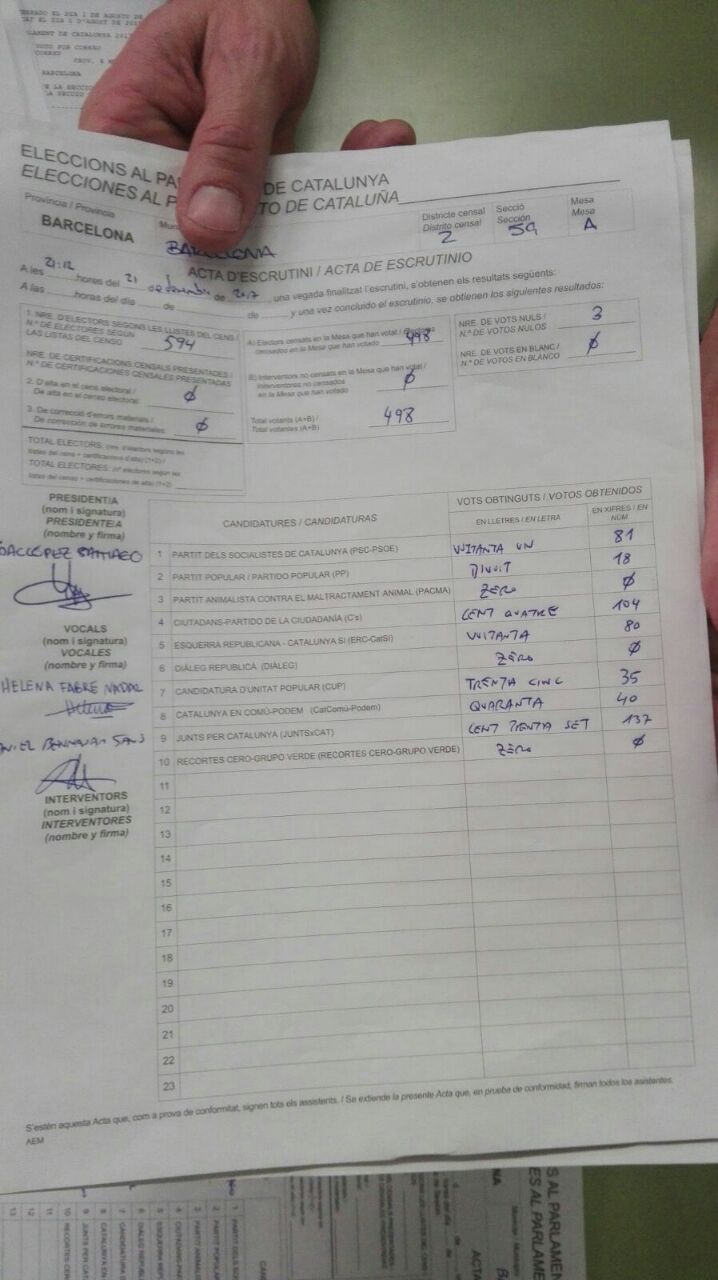 VOTO POR CORREO
CORREO
BARCELONA
ELECCIONS AL PA DE CATALUNYA
ELECCIONES AL P TO DE CATALUÑA
Província / Provincia
BARCELONA
BARCELONA
Districte censal
Distrito censal
2
Secció
Sección
59
Mesa
Mesa
A
ACTA D'ESCRUTINI / ACTA DE ESCRUTINIO
A les 21:12 hores del 21 de desembre de 2017, una vegada finalitzat l'escrutini, s'obtenen els resultats següents:
A las horas del día de de y una vez concluido el escrutinio, se obtienen los siguientes resultados:
1. NRE. D'ELECTORS SEGONS LES LLISTES DEL CENS /
N.º DE ELECTORES SEGÚN
LAS LISTAS DEL CENSO
594
NRE. DE CERTIFICACIONS CENSALS PRESENTADES /
N.º DE CERTIFICACIONES CENSALES PRESENTADAS
2. D'alta en el cens electoral /
De alta en el censo electoral
Ø
3. De correcció d'errors materials /
De corrección de errores materiales
Ø
TOTAL ELECTORS: (nre. d'electors segons les
llistes del cens + certificacions d'alta) (1+2) /
TOTAL ELECTORES: (nº electores según las
listas del censo + certificaciones de alta) (1+2)
A) Electors censats en la Mesa que han votat / Electores
censados en la Mesa que han votado
498
B) Interventors no censats en la Mesa que han votat /
Interventores no censados
en la Mesa que han votado
Ø
Total votants (A+B) /
Total votantes (A+B)
498
NRE. DE VOTS NULS /
N.º DE VOTOS NULOS
3
NRE. DE VOTS EN BLANC /
N.º DE VOTOS EN BLANCO
Ø
PRESIDENT/A
(nom i signatura)
PRESIDENTE/A
(nombre y firma)
VOCALS
(nom i signatura)
VOCALES
(nombre y firma)
HELENA FABRE NADAL
INTERVENTORS
(nom i signatura)
INTERVENTORES
(nombre y firma)
CANDIDATURES / CANDIDATURAS
VOTS OBTINGUTS / VOTOS OBTENIDOS
EN LLETRES / EN LETRA
EN XIFRES / EN NÚM
1 PARTIT DELS SOCIALISTES DE CATALUNYA (PSC-PSOE) VUITANTA UN 81
2 PARTIT POPULAR / PARTIDO POPULAR (PP) DIVUIT 18
3 PARTIT ANIMALISTA CONTRA EL MALTRACTAMENT ANIMAL (PACMA) ZERO Ø
4 CIUTADANS-PARTIDO DE LA CIUDADANÍA (C's) CENT QUATRE 104
5 ESQUERRA REPUBLICANA - CATALUNYA SÍ (ERC-CatSí) VUITANTA 80
6 DIÀLEG REPUBLICÀ (DIÀLEG) ZERO Ø
7 CANDIDATURA D'UNITAT POPULAR (CUP) TRENTA CINC 35
8 CATALUNYA EN COMÚ-PODEM (CatComú-Podem) QUARANTA 40
9 JUNTS PER CATALUNYA (JUNTSxCAT) CENT TRENTA SET 137
10 RECORTES CERO-GRUPO VERDE (RECORTES CERO-GRUPO VERDE) ZERO Ø
11
12
13
14
15
16
17
18
19
20
21
22
23
S'estén aquesta Acta que, com a prova de conformitat, signen tots els assistents. / Se extiende la presente Acta que, en prueba de conformidad, firman todos los asistentes.
AEM